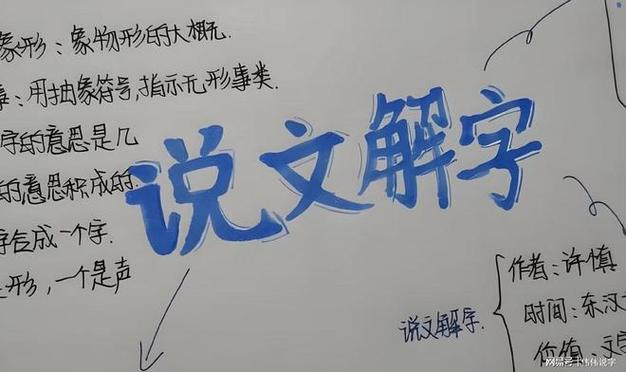 象形：象物形的大概.
事：用抽象符号,指示无形事类.
字的意思是几
的意思积成的.
字合成一个字.
形，一个是声
说文解字
说文解字.
作者：许慎
时间：东汉
价值：文字
网易号 | 伟伟说字